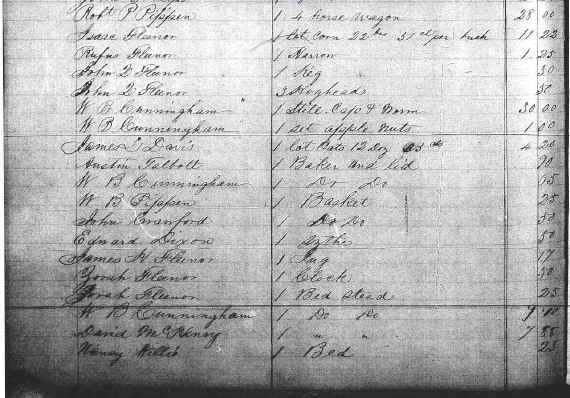 Robt P Pippen 1 4 horse wagon 28 00
Isaac Fleanor 1 lot corn 22 bus 51 cts per bush 11 22
Rufus Fleanor 1 Harrow 1 25
John Q Fleanor 1 Keg 30
John Q Fleanor 3 Hogheads 50
W B Cunningham 1 Still Cap & Worm 30 00
W B Cunningham 1 set apple nuts 1 00
James Davis 1 lot Oats 12 Doz 35 cts 4 20
Austin Talbott 1 Baker and lid 90
W B Cunningham 1 Do Do
W B Pippen 1 Basket 25
John Crawford 1 Do Do 50
Edward Dixon 1 Sythe 50
James H Fleanor 1 Jug 17
Zorah Fleanor 1 Clock 50
Zorah Fleanor 1 Bed stead 25
W B Cunningham 1 Do Do
David McHenry 1 " " 7 85
Nancy Willis 1 Bed 25